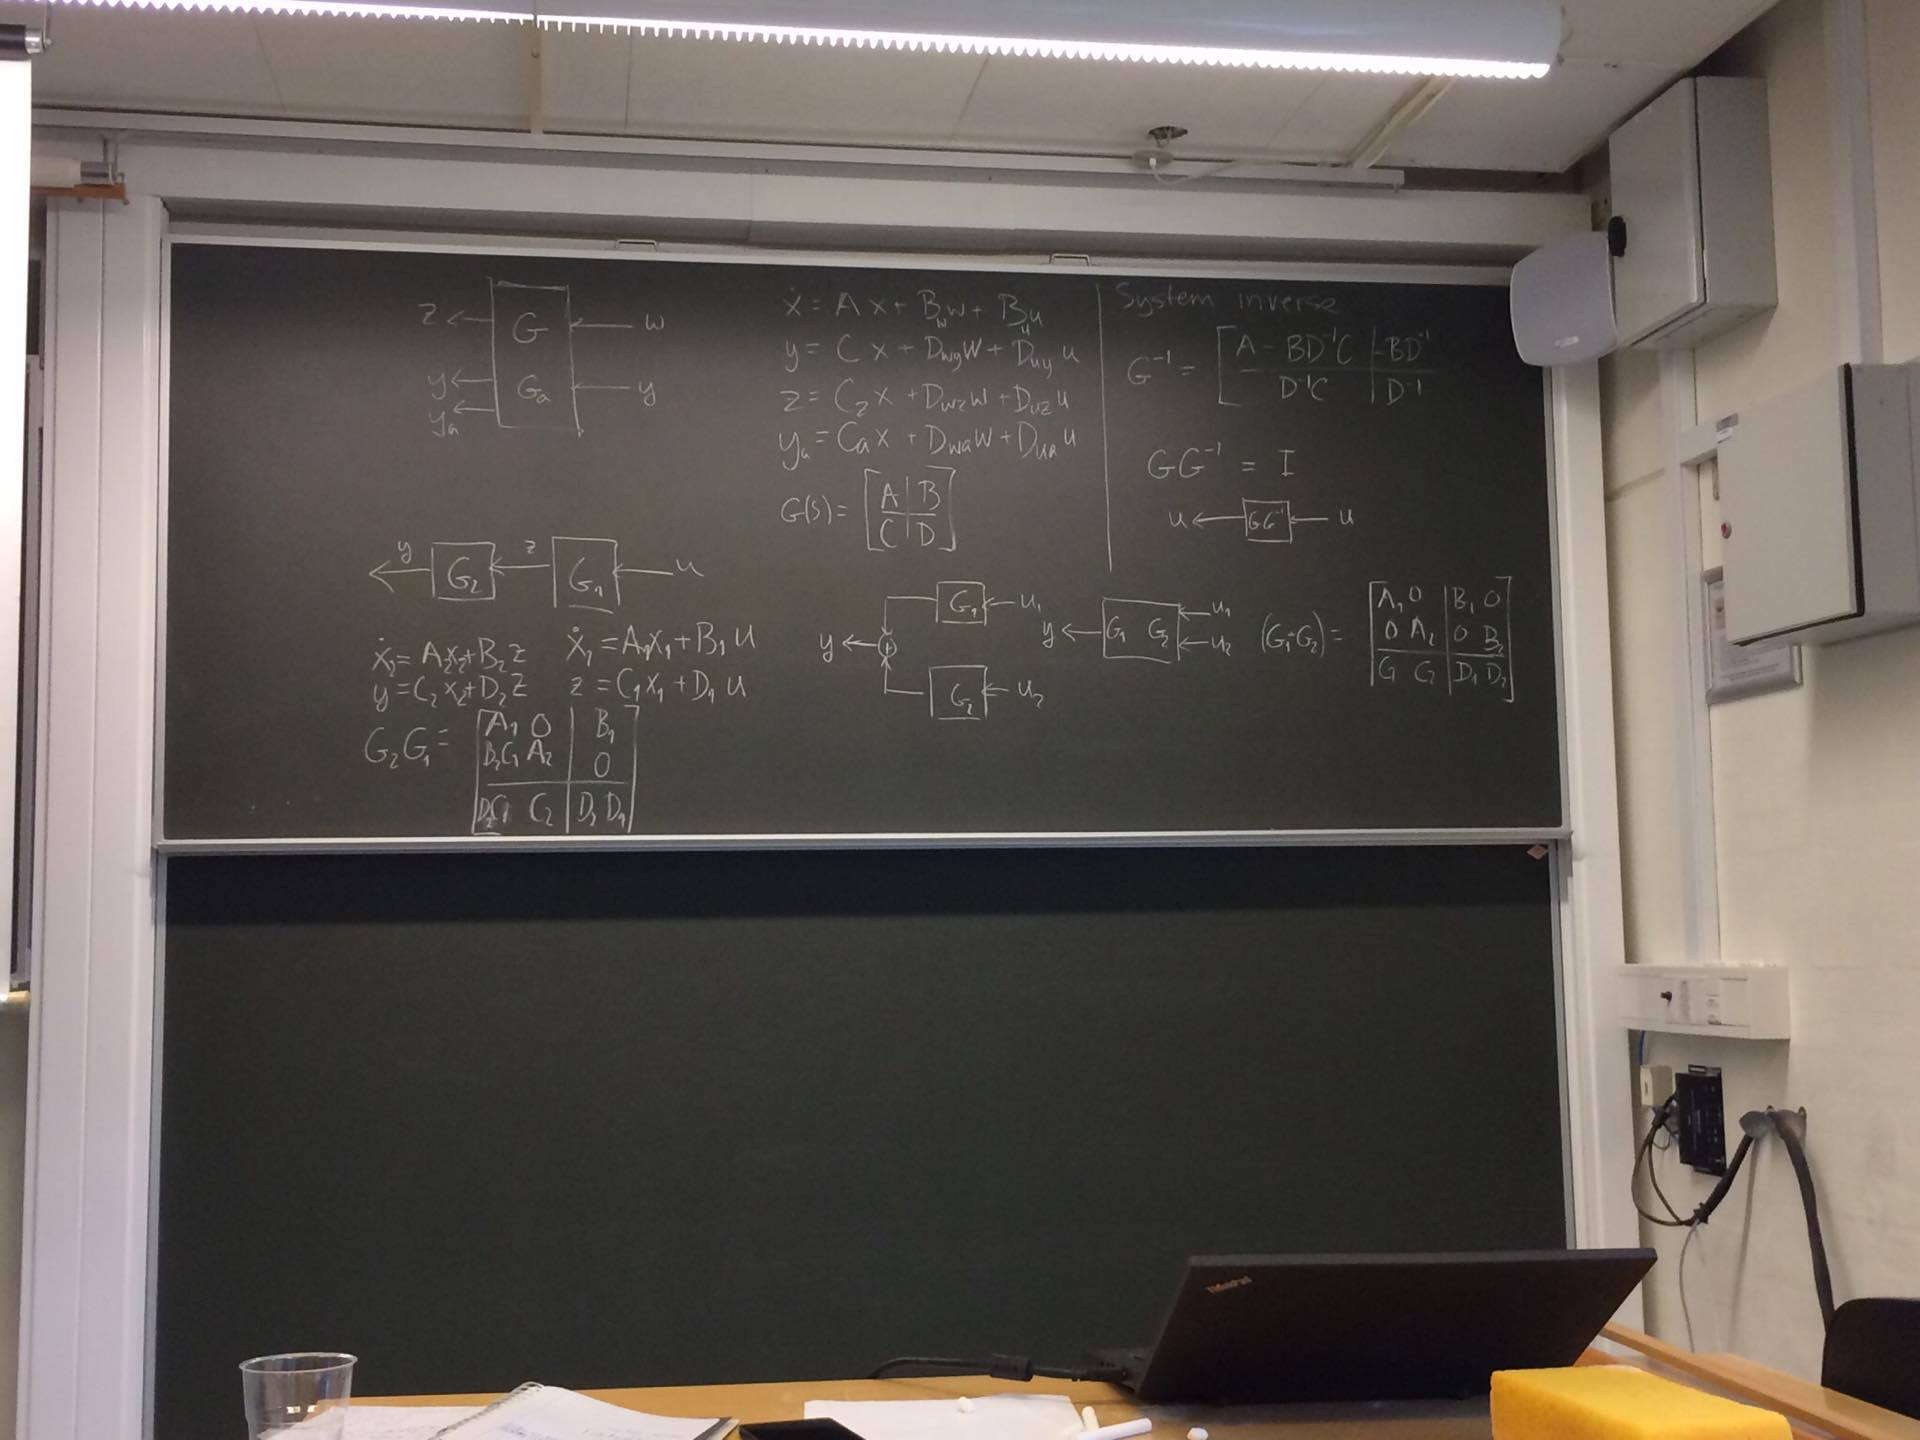 z G w
y Gₐ y
yₐ
ẋ = A x + B_w w + B_u u
y = C x + D_wy w + D_uy u
z = C_z x + D_wz w + D_uz u
yₐ = Cₐ x + D_wa w + D_ua u
G(s) = [ A | B
C | D ]
System inverse
G⁻¹ = [ A - BD⁻¹C | -BD⁻¹
D⁻¹C | D⁻¹ ]
GG⁻¹ = I
u GG⁻¹ u
y G₂ z G₁ u
ẋ₂ = A₂x₂ + B₂ z ẋ₁ = A₁x₁ + B₁ u
y = C₂ x₂ + D₂ z z = C₁ x₁ + D₁ u
G₂G₁ = [ A₁ 0 | B₁
B₂C₁ A₂ | 0
D₂C₁ C₂ | D₂ D₁ ]
G₁ u₁
y +
G₂ u₂
y G₁ G₂ u₁
u₂
(G₁+G₂) = [ A₁ 0 | B₁ 0
0 A₂ | 0 B₂
C₁ C₂ | D₁ D₂ ]
ThinkPad